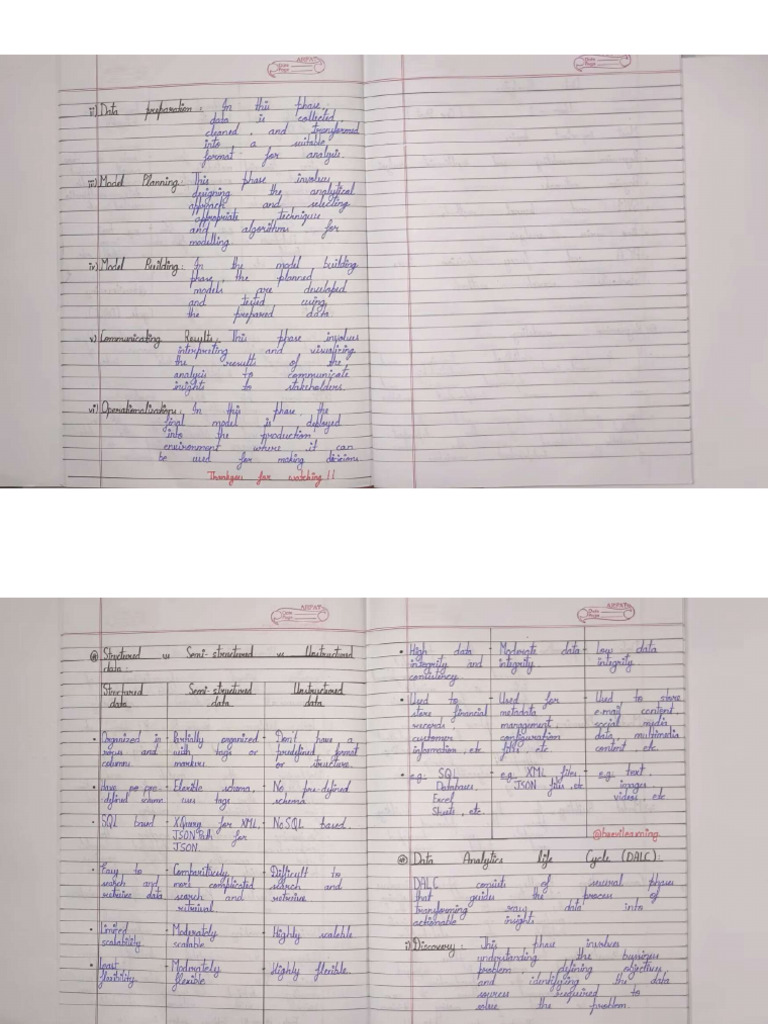 AJIPAT
Date
Page
ii) Data preparation: In this phase,
data is collected
cleaned, and transformed
into a suitable
format for analysis.
iii) Model Planning: This phase involves
designing the analytical
approach and selecting
appropriate techniques
and algorithms for
modelling
iv) Model Building: In the model building
phase, the planned
models are developed
and tested using
the prepared data
v) Communicating Results: This phase involves
interpreting and visualizing
the results of the
analysis to communicate
insights to stakeholders.
vi) Operationalization: In this phase, the
final model is deployed
into the production
environment where it can
be used for making dicisions
Thankyou for watching!!
Date
Page
Structured vs Semi-structured vs Unstructured
data:
Structured
data
Semi structured
data
Unstructured
data
• Organized in
rows and
columns
- Partially organized
with tags or
markers
- Don't have a
predefined format
or structure.
• have pre-pre-
defined schema
- Flexible schema,
uses tags
- No pre-defined
schema
• SQL based
- XQuery for XML,
JSONPath for
JSON.
- NoSQL based.
• Easy to
search and
retrieve data
- Comparitively
more complicated
search and
retrieval.
- Difficult to
search and
retrieve
• Limited
scalability.
- Moderately
scalable.
- Highly scalable
• Least
flexibility.
- Moderately
flexible
- Highly flexible.
Date
Page
• High data
integrity and
consistency
- Moderate data
integrity
- low data
integrity
• Used to
store financial
records
customer
information, etc
- Used for
metadata
management,
configuration
files, etc
- Used to store
e-mail content,
social media
data, multimedia
content, etc.
• e.g. SQL
Databases,
Excel
Sheets, etc.
- e.g. XML files
JSON files, etc
- e.g. text,
images,
videos, etc
Data Analytics life Cycle (DALC):
DALC consists of several phases
that guides the process of
transforming raw data into
actionable insight.
i) Discovery: This phase involves
understanding the business
problem, defining objectives,
and identifying the data
sources required to
solve the problem.